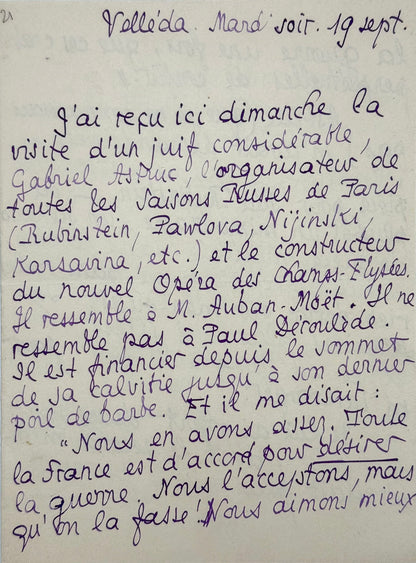 21
Velléda. Mardi soir. 19 sept.
J'ai reçu ici dimanche la
visite d'un juif considérable,
Gabriel Astruc, l'organisateur de
toutes les Saisons Russes de Paris
(Rubinstein, Pawlova, Nijinski,
Karsavina, etc.) et le constructeur
du nouvel Opéra des Champs-Elysées.
Il ressemble à M. Auban-Moët. Il ne
ressemble pas à Paul Déroulède.
Il est financier depuis le sommet
de sa calvitie jusqu'à son dernier
poil de barbe. Et il me disait :
"Nous en avons assez. Toute
la France est d'accord pour désirer
la guerre. Nous l'acceptons, mais
qu'on la fasse ! Nous aimons mieux